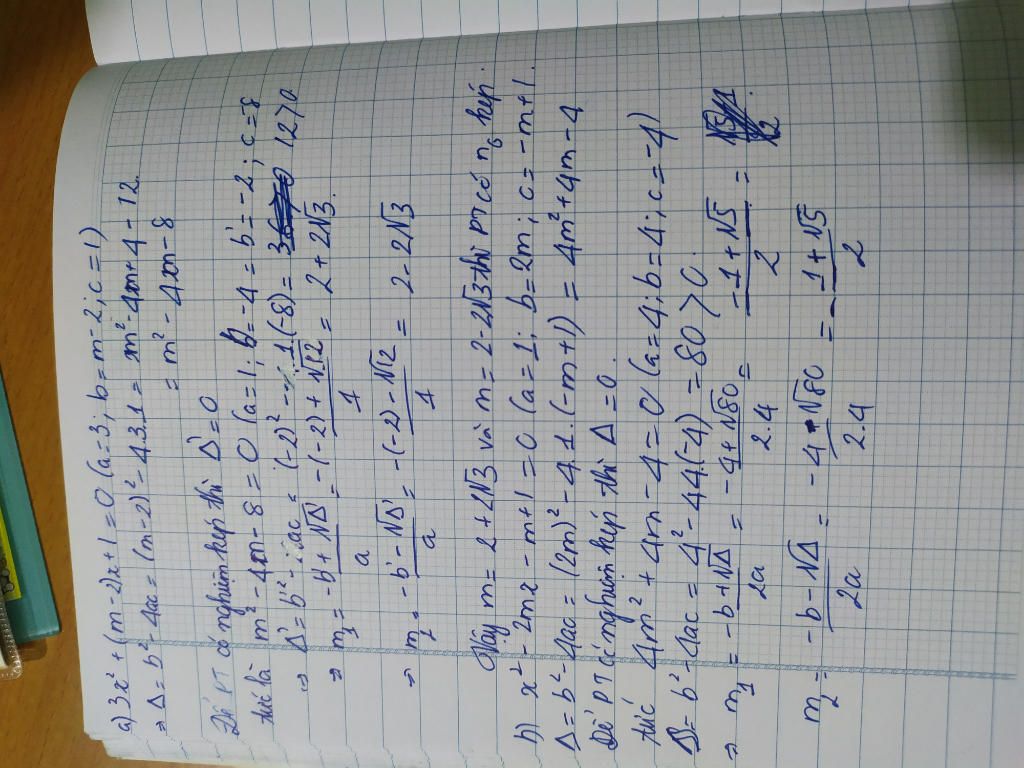 a) 3x² + (m-2)x+1 = 0 (a=3; b=m-2; c=1)
⇒ Δ = b² - 4ac = (m-2)² - 4.3.1 = m² - 4m + 4 - 12.
= m² - 4m - 8
Để PT có nghiệm kép thì Δ = 0
tức là m² - 4m - 8 = 0 (a=1; b=-4 = b'=-2; c=8
⇒ Δ' = b'² - ac = (-2)² - 1.(-8) = 12>0
⇒ m₁ = -b'+√Δ'/a = -(-2)+√12/1 = 2+2√3.
⇒ m₂ = -b'-√Δ'/a = -(-2)-√12/1 = 2-2√3
Vậy m = 2+2√3 và m = 2-2√3 thì PT có nₒ kép.
b) x² - 2mx - m+1 = 0 (a=1; b=2m; c=-m+1.
Δ = b² - 4ac = (2m)² - 4.1.(-m+1) = 4m² + 4m - 4
Để PT có nghiệm kép thì Δ = 0.
tức 4m² + 4m - 4 = 0 (a=4; b=4; c=-4)
Δ = b² - 4ac = 4² - 44.(-4) = 80 > 0.
⇒ m₁ = -b+√Δ/2a = -4+√80/2.4 = -1+√5/2 =
m₂ = -b-√Δ/2a = -4-√80/2.4 = -1+√5/2